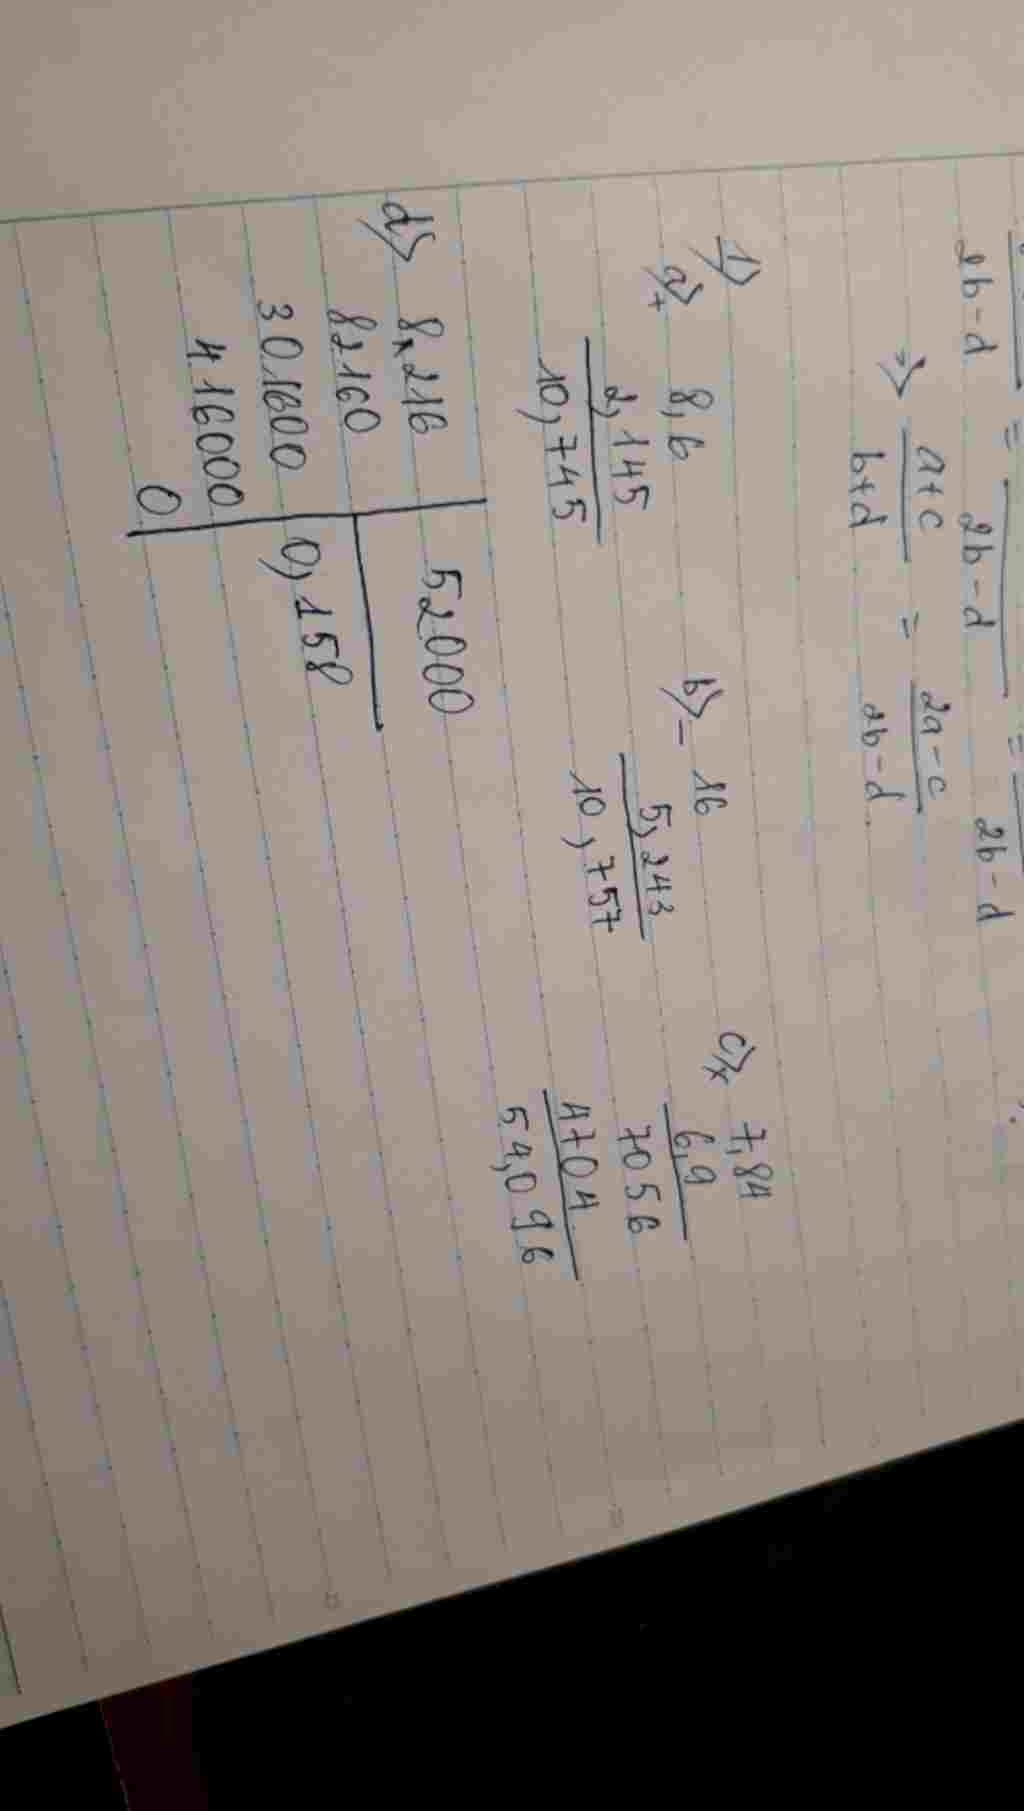 2b-d = 2b-d = 2b-d
=> a+c/b+d = 2a-c/2b-d.
1)
a) + 8,6
2,145
10,745
b) - 16
5,243
10,757
c) x 7,84
6,9
7056
4704
54,096
d) 8,216 52000
82160 0,158
301600
416000
0